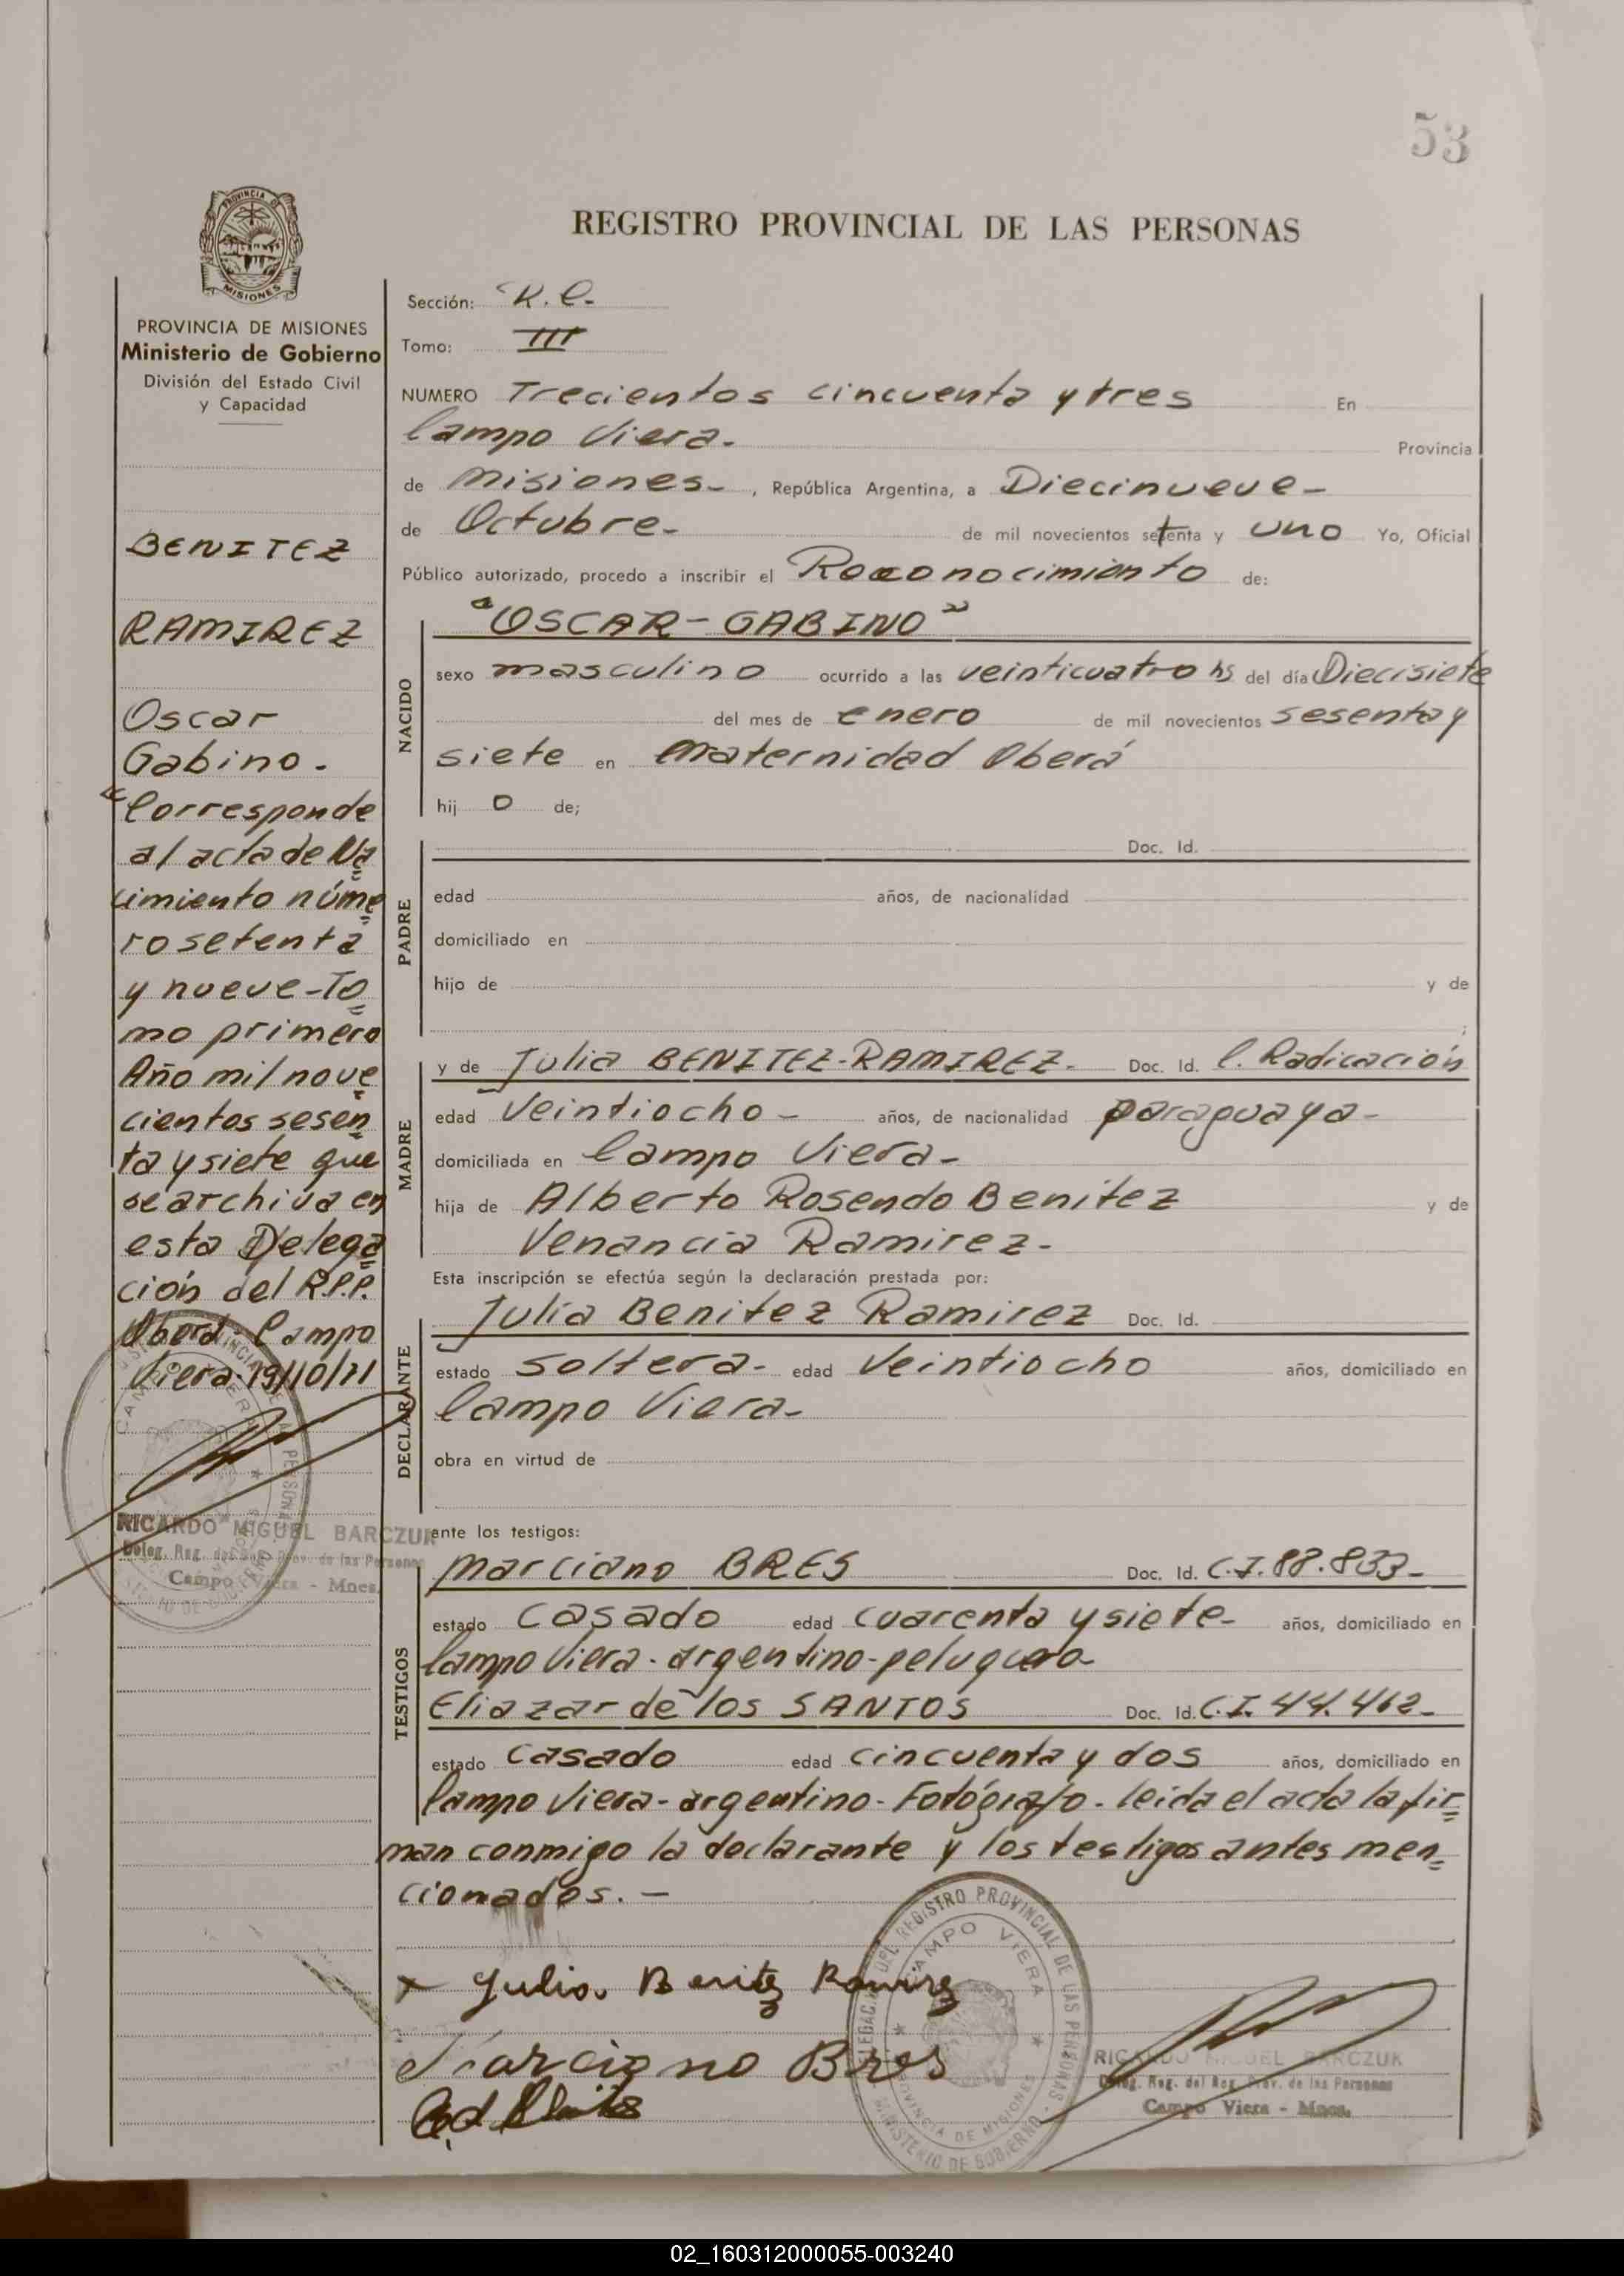 53
REGISTRO PROVINCIAL DE LAS PERSONAS
PROVINCIA DE MISIONES
Ministerio de Gobierno
División del Estado Civil
y Capacidad
BENITEZ
RAMIREZ
Oscar
Gabino.
"Corresponde
al acta de Na
cimiento núme
ro setenta
y nueve-To
mo primero
Año mil nove
cientos sesen
ta y siete que
se archiva en
esta Delega
ción del R.P.P.
Oberá-Campo
Viera-19/10/71
RICARDO MIGUEL BARCZUK
Deleg. Reg. del Reg. Prov. de las Personas
Campo Viera - Mnes.
Sección: R.C.
Tomo: III
NUMERO Trecientos cincuenta y tres En
Campo Viera. Provincia
de Misiones-, República Argentina, a Diecinueve-
de Octubre- de mil novecientos setenta y uno Yo, Oficial
Público autorizado, procedo a inscribir el Reconocimiento de:
NACIDO
"OSCAR-GABINO"
sexo masculino ocurrido a las veinticuatro hs del día Diecisiete
del mes de enero de mil novecientos sesenta y
siete en Maternidad Oberá
hij o de;
PADRE
Doc. Id.
edad años, de nacionalidad
domiciliado en
hijo de y de
;
MADRE
y de Julia BENITEZ-RAMIREZ- Doc. Id. C. Radicación
edad Veintiocho- años, de nacionalidad paraguaya-
domiciliada en Campo Viera-
hija de Alberto Rosendo Benitez y de
Venancia Ramirez-
Esta inscripción se efectúa según la declaración prestada por:
DECLARANTE
Julia Benitez Ramirez Doc. Id.
estado soltera- edad Veintiocho años, domiciliado en
Campo Viera-
obra en virtud de
ante los testigos:
TESTIGOS
Marciano BRES Doc. Id. C.I. 88.833-
estado casado edad cuarenta y siete- años, domiciliado en
Campo Viera-argentino-peluquero-
Eliazar de los SANTOS Doc. Id. C.I. 44.462-
estado casado edad cincuenta y dos años, domiciliado en
Campo Viera-argentino-Fotógrafo-leida el acta la fir
man conmigo la declarante y los testigos antes men
cionados.-
x Julia Benitez Ramirez
Marciano Bres
DELEGACION DEL REGISTRO PROVINCIAL DE LAS PERSONAS
CAMPO VIERA
PROVINCIA DE MISIONES
MINISTERIO DE GOBIERNO
RICARDO MIGUEL BARCZUK
Deleg. Reg. del Reg. Prov. de las Personas
Campo Viera - Mnes.
02_160312000055-003240